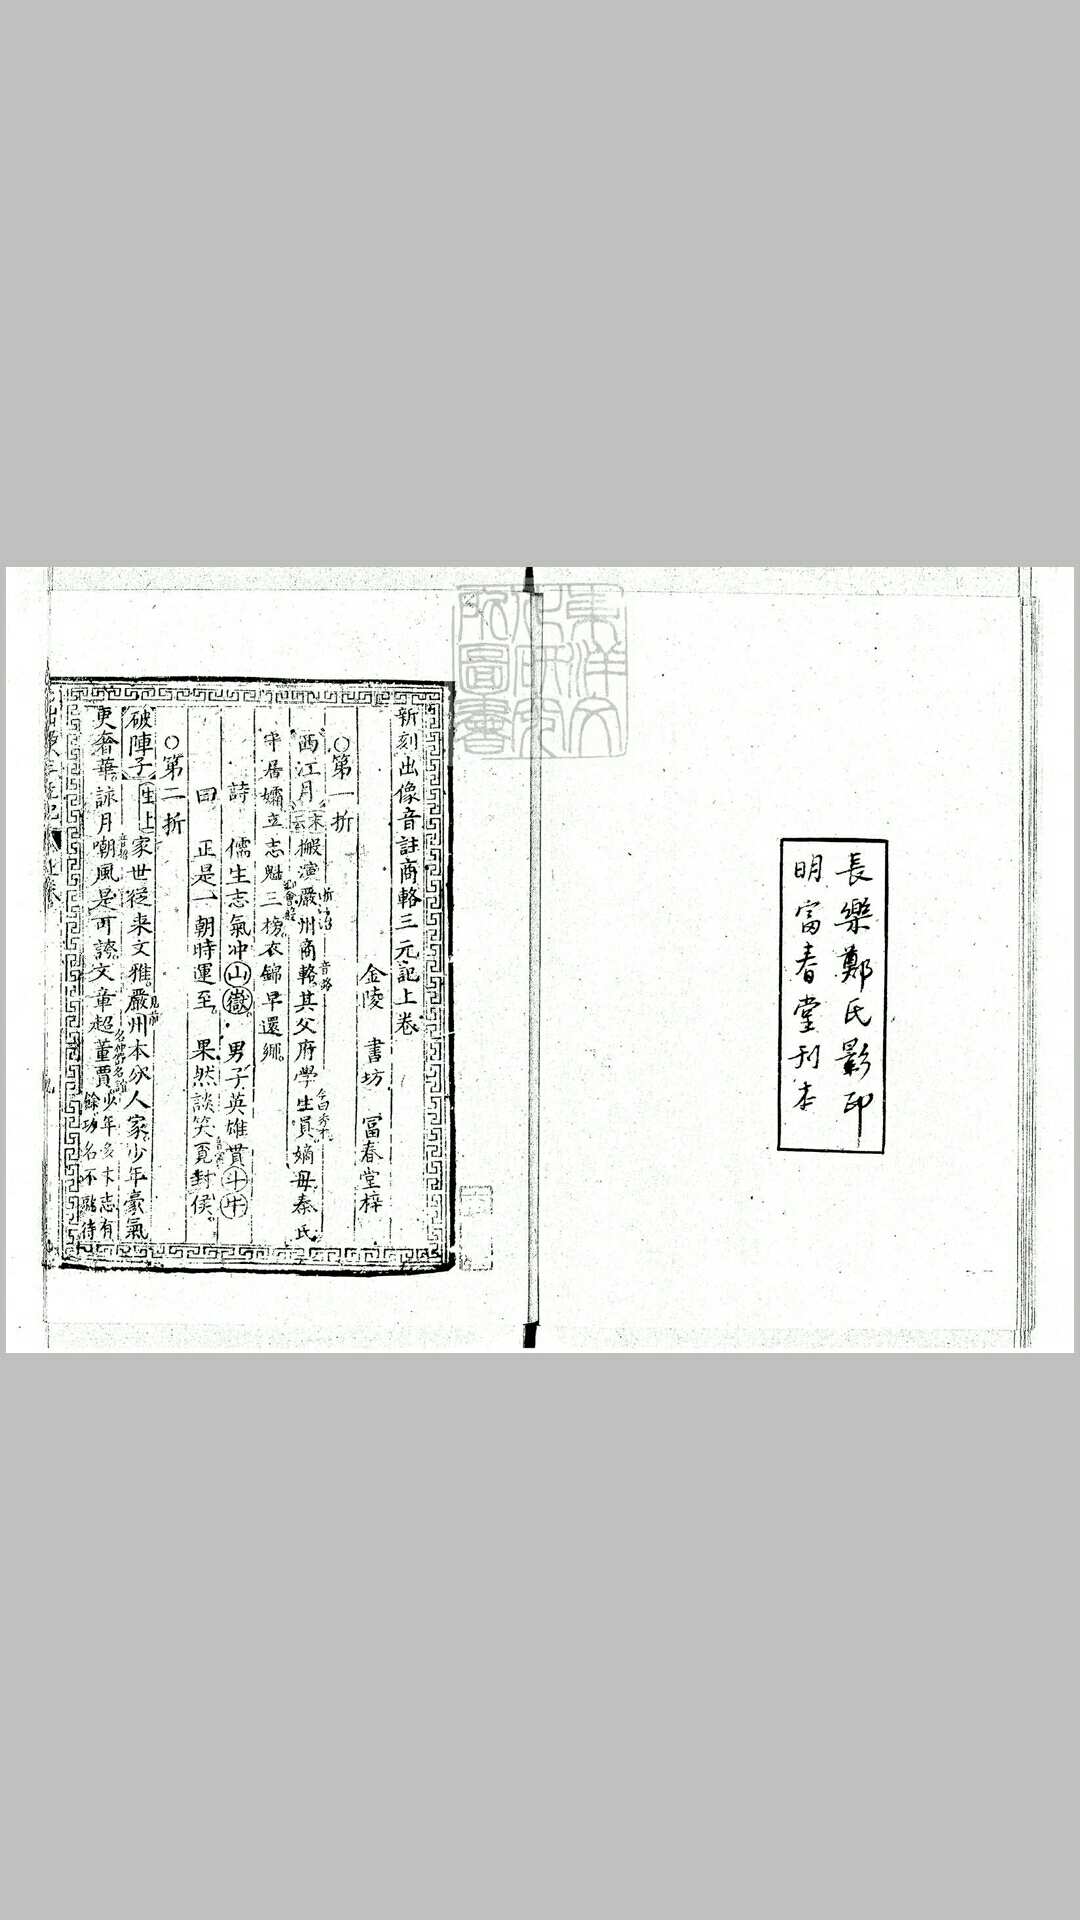 長樂鄭氏影印
明富春堂刊本
新刻出像音註商輅三元記上卷
金陵 書坊 冨春堂梓
○第一折
西江月
末云
搬演嚴州商輅其父府學生員嫡母秦氏
音路
守居孀立志魁三榜衣錦早還鄉
詩 儒生志氣冲山嶽 男子英雄貫斗牛
曰 正是一朝時運至 果然談笑覓封侯
○第二折
破陣子
生上
家世從来文雅嚴州本分人家少年豪氣
見前
更奢華詠月嘲風是可談文章超董賈
少年多大志有
餘功名不
待